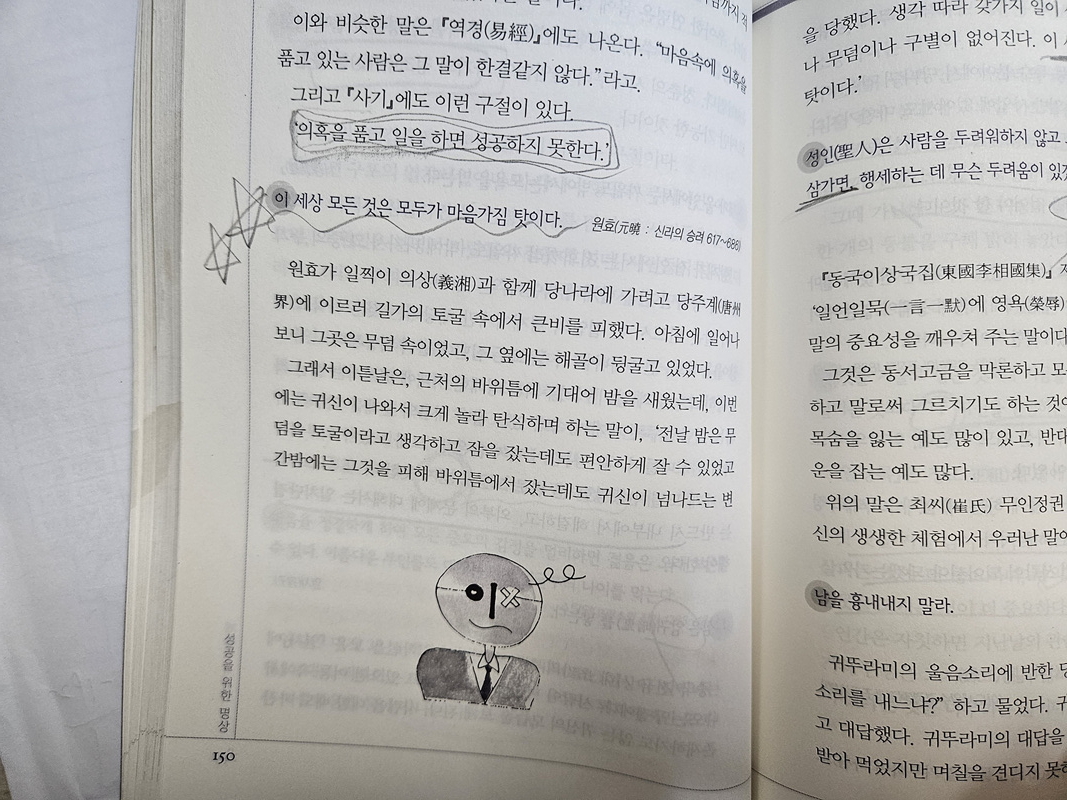 이와 비슷한 말은 『역경(易經)』에도 나온다. “마음속에 의혹을
품고 있는 사람은 그 말이 한결같지 않다.”라고.
그리고 『사기』에도 이런 구절이 있다.
‘의혹을 품고 일을 하면 성공하지 못한다.’
이 세상 모든 것은 모두가 마음가짐 탓이다.
원효(元曉 : 신라의 승려 617~686)
원효가 일찍이 의상(義湘)과 함께 당나라에 가려고 당주계(唐州
界)에 이르러 길가의 토굴 속에서 큰비를 피했다. 아침에 일어나
보니 그곳은 무덤 속이었고, 그 옆에는 해골이 뒹굴고 있었다.
그래서 이튿날은, 근처의 바위틈에 기대어 밤을 새웠는데, 이번
에는 귀신이 나와서 크게 놀라 탄식하며 하는 말이, ‘전날 밤은 무
덤을 토굴이라고 생각하고 잠을 잤는데도 편안하게 잘 수 있었고
간밤에는 그것을 피해 바위틈에서 잤는데도 귀신이 넘나드는 변
성공을 위한 명상
150
을 당했다. 생각 따라 갖가지 일이
나 무덤이나 구별이 없어진다. 이
탓이다.’
성인(聖人)은 사람을 두려워하지 않고
삼가면, 행세하는 데 무슨 두려움이
『동국이상국집(東國李相國集)』
‘일언일묵(一言一默)에 영욕(榮辱)
말의 중요성을 깨우쳐 주는 말이다
그것은 동서고금을 막론하고
하고 말로써 그르치기도 하는
목숨을 잃는 예도 많이 있고,
운을 잡는 예도 많다.
위의 말은 최씨(崔氏) 무인정권
신의 생생한 체험에서 우러난
남을 흉내내지 말라.
귀뚜라미의 울음소리에 반한
소리를 내느냐?” 하고 물었다.
고 대답했다. 귀뚜라미의 대답을
받아 먹었지만 며칠을 견디지